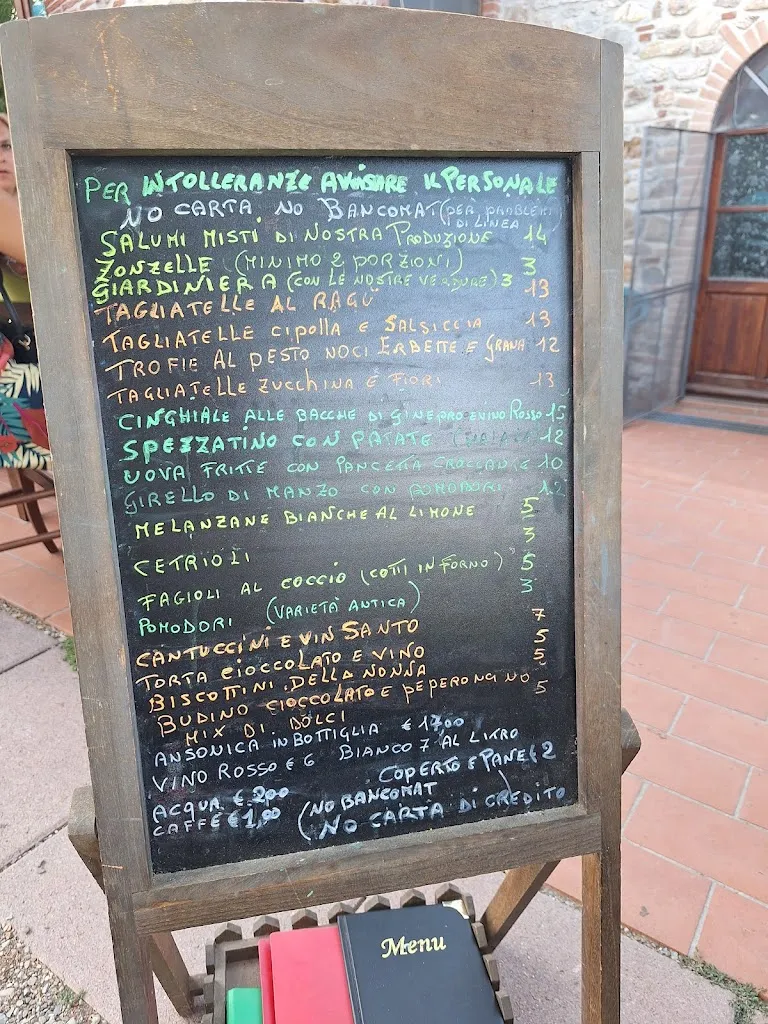 PER INTOLLERANZE AVVISARE IL PERSONALE
NO CARTA NO BANCOMAT (PER PROBLEMI DI LINEA)
SALUMI MISTI DI NOSTRA PRODUZIONE 14
ZONZELLE (MINIMO 2 PORZIONI) 3
GIARDINIERA (CON LE NOSTRE VERDURE) 3
TAGLIATELLE AL RAGÙ 13
TAGLIATELLE CIPOLLA E SALSICCIA 13
TROFIE AL PESTO NOCI ERBETTE E GRANA 12
TAGLIATELLE ZUCCHINA E FIORI 13
CINGHIALE ALLE BACCHE DI GINEPRO E VINO ROSSO 15
SPEZZATINO CON PATATE 12
UOVA FRITTE CON PANCETTA CROCCANTE 10
GIRELLO DI MANZO CON POMODORI 12
MELANZANE BIANCHE AL LIMONE 5
CETRIOLI 3
FAGIOLI AL COCCIO (COTTI IN FORNO) 5
POMODORI (VARIETÀ ANTICA) 3
CANTUCCINI E VIN SANTO 7
TORTA CIOCCOLATO E VINO 5
BISCOTTINI DELLA NONNA 5
BUDINO CIOCCOLATO E PEPERONCINO 5
MIX DI DOLCI
ANSONICA IN BOTTIGLIA € 17,00
VINO ROSSO € 6 BIANCO 7 AL LITRO
COPERTO E PANE € 2
ACQUA € 2,00
CAFFÈ € 1,00
(NO BANCOMAT)
(NO CARTA DI CREDITO
Menu